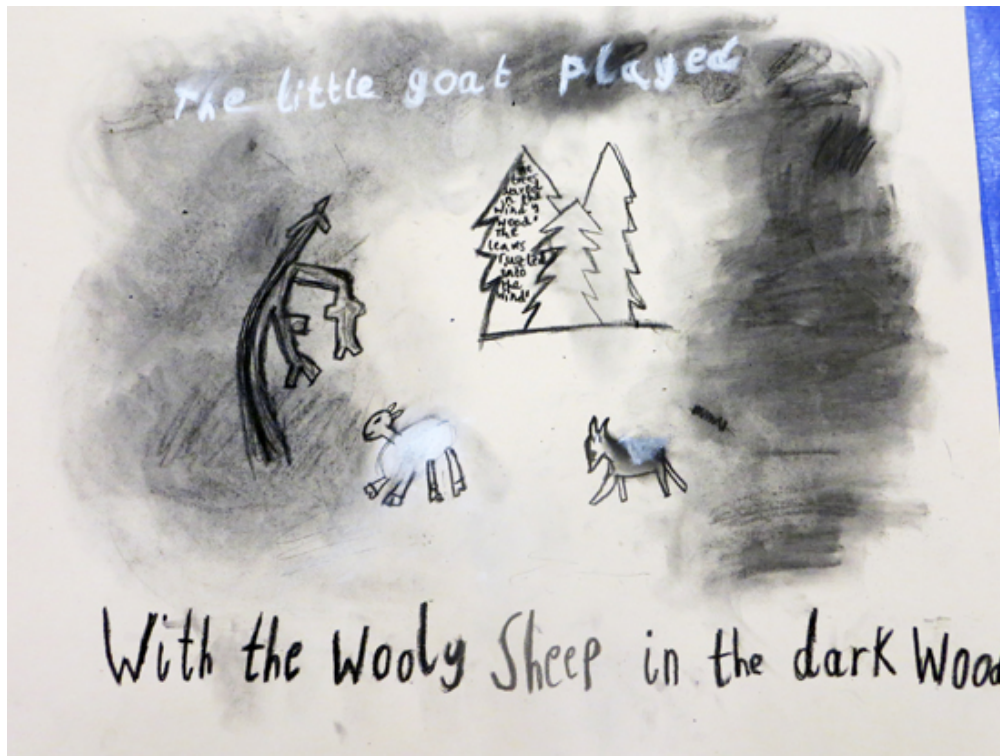 The little goat played
the
trees
waved
in the
windy
wood"
the
leavs
rustled
into
the
wind"
With the Wooly Sheep in the dark Wood